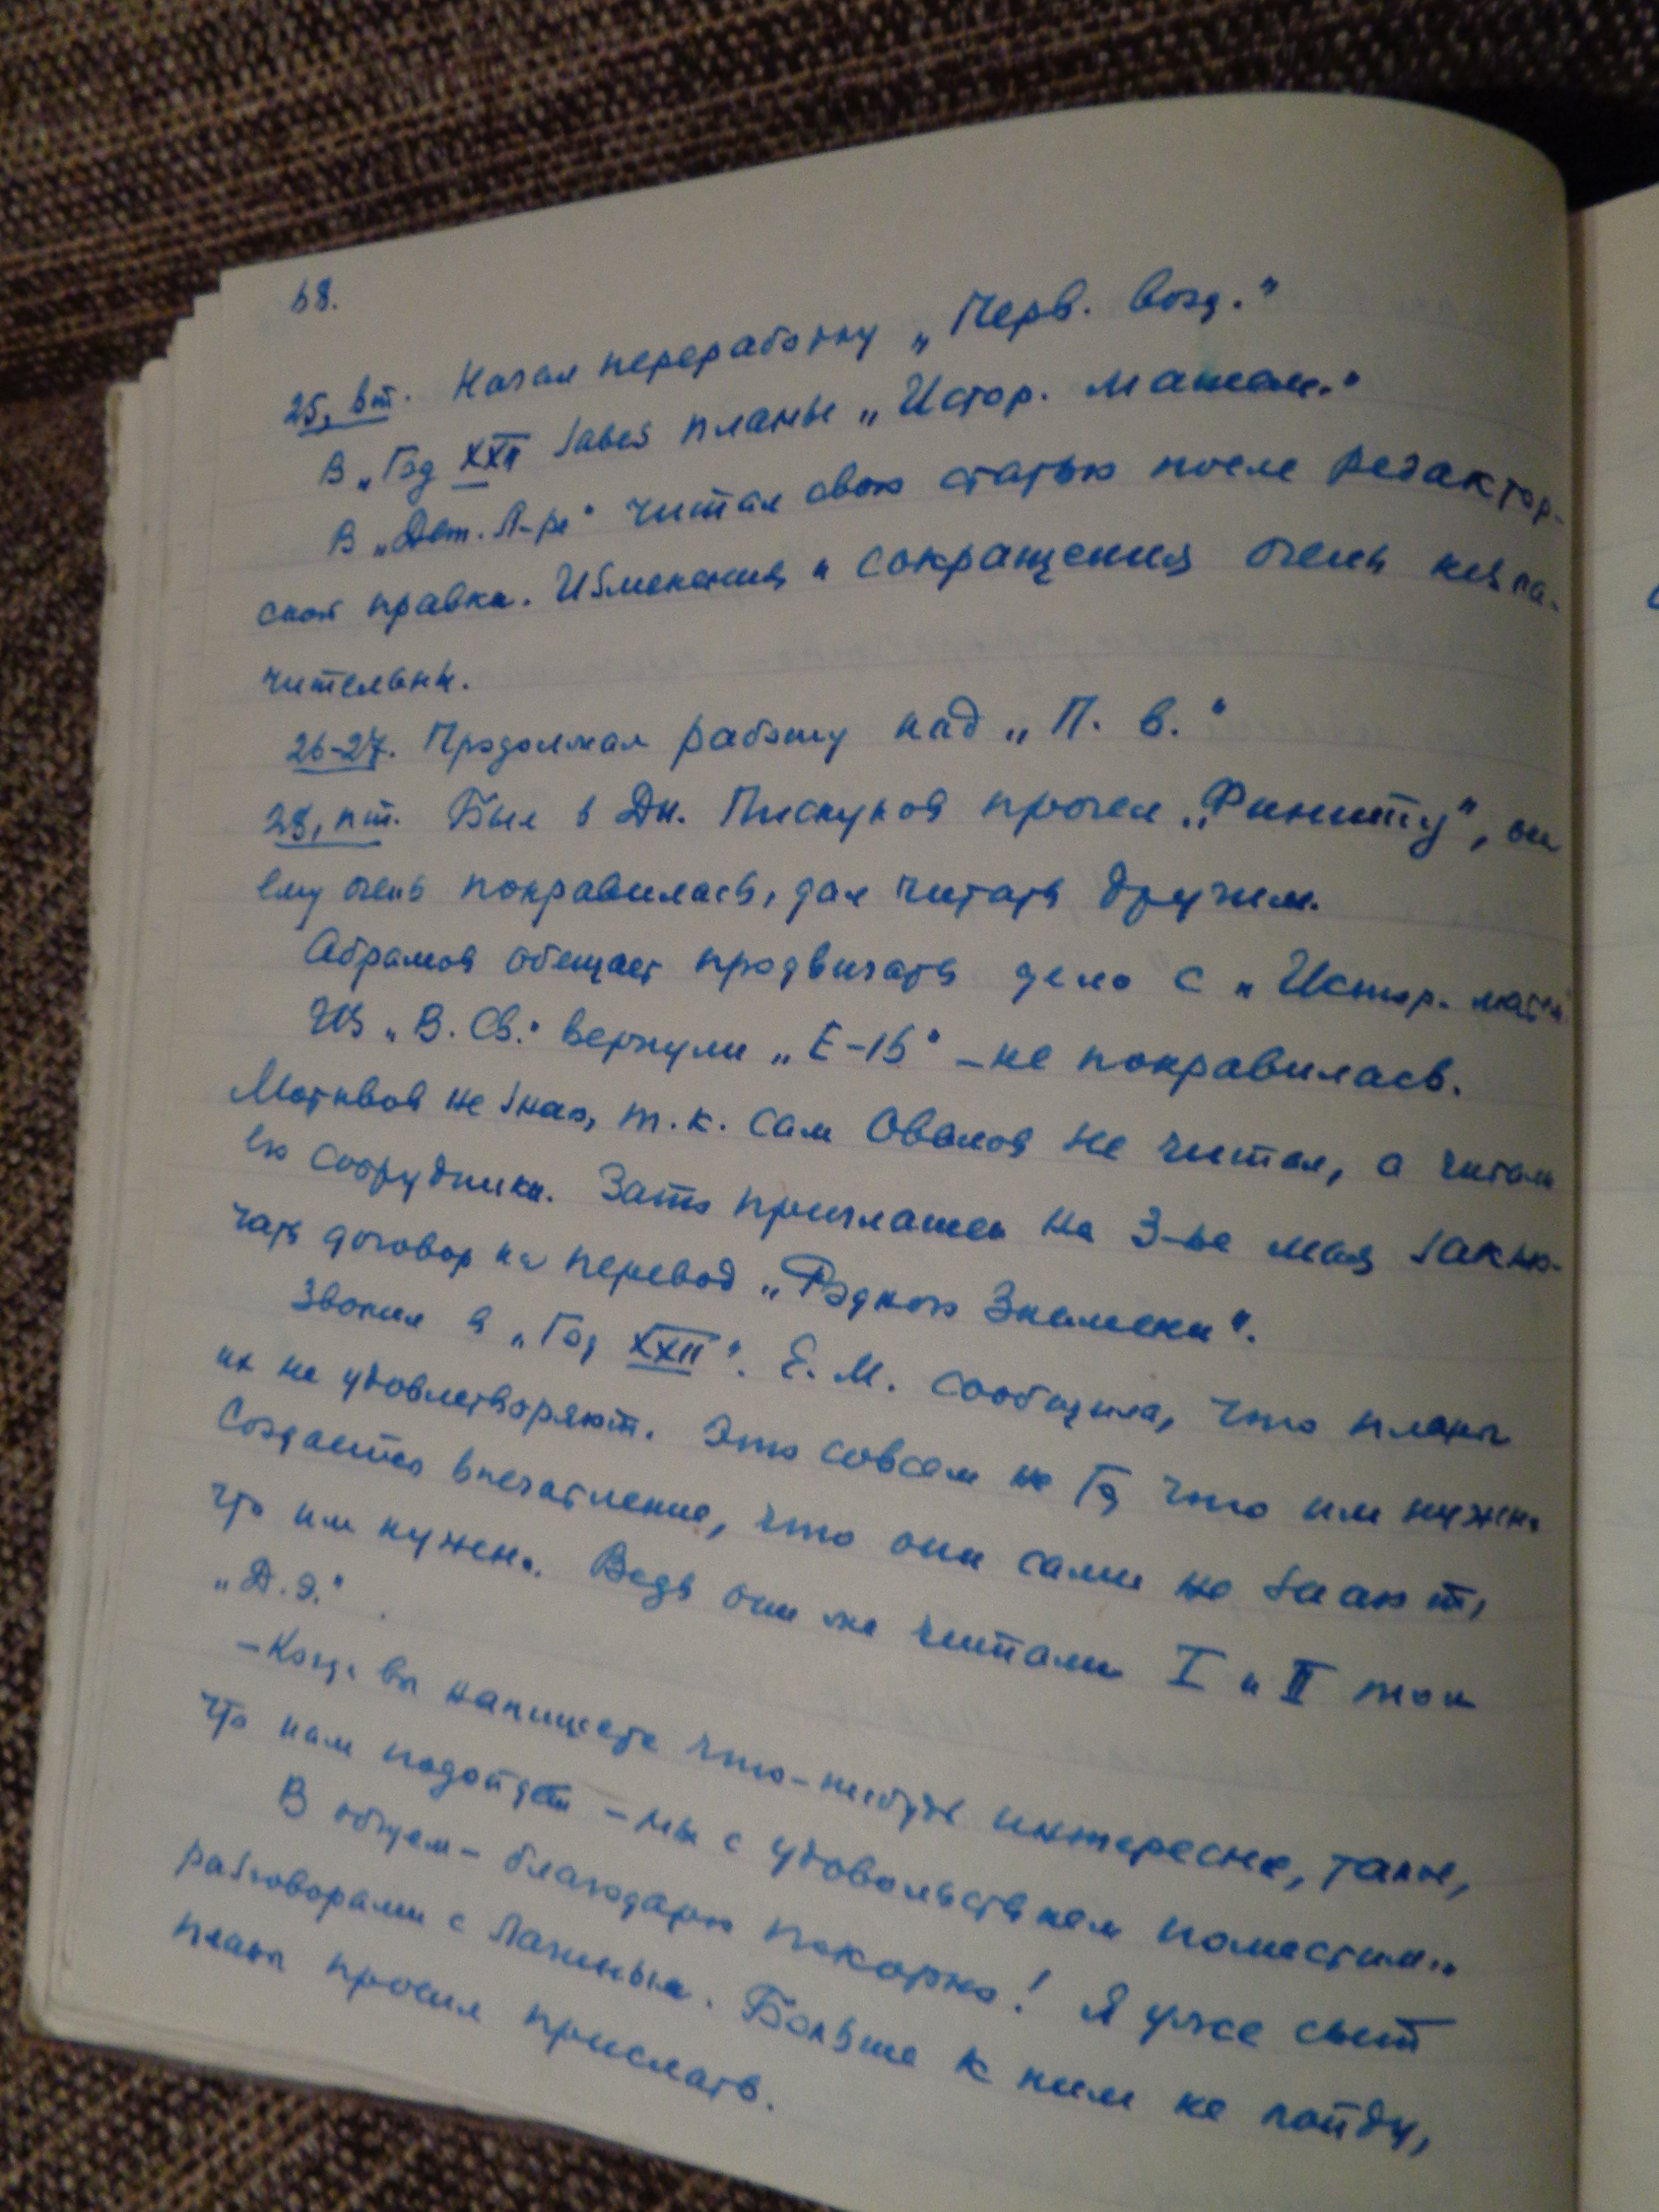 68.
25, вт. Начал переработку „Перв. возд."
В „Год XXII завез планы „Истор. матем."
В „Дет. Л-ре" читал свою статью после редактор-
ской правки. Изменения и сокращения очень незна-
чительны.
26-27. Продолжал работу над „П. в."
28, пт. Был в Ди. Пискунов прочел „Финиту", он
ему очень понравилась, дал читать другим.
Абрамов обещает продвигать дело с „Истор. матем
Из „В. Св." вернули „Е-15" – не понравилась.
Мотивов не знаю, т.к. сам Овалов не читал, а читали
ее сотрудники. Зато приглашен на 3-ье мая заклю-
чать договор на перевод „Родного Знамени".
Звонил в „Год XXII". Е. М. сообщила, что планы
их не удовлетворяют. Это совсем не то, что им нужно
Создается впечатление, что они сами не знают,
что им нужно. Ведь они же читали I и II том
„Д.Э."
– Когда вы напишете что-нибудь интересное, такое,
что нам подойдет – мы с удовольствием поместим..
В общем – благодарю покорно! Я уже сыт
разговорами с Лапиным. Больше к ним не пойду,
планы просил прислать.